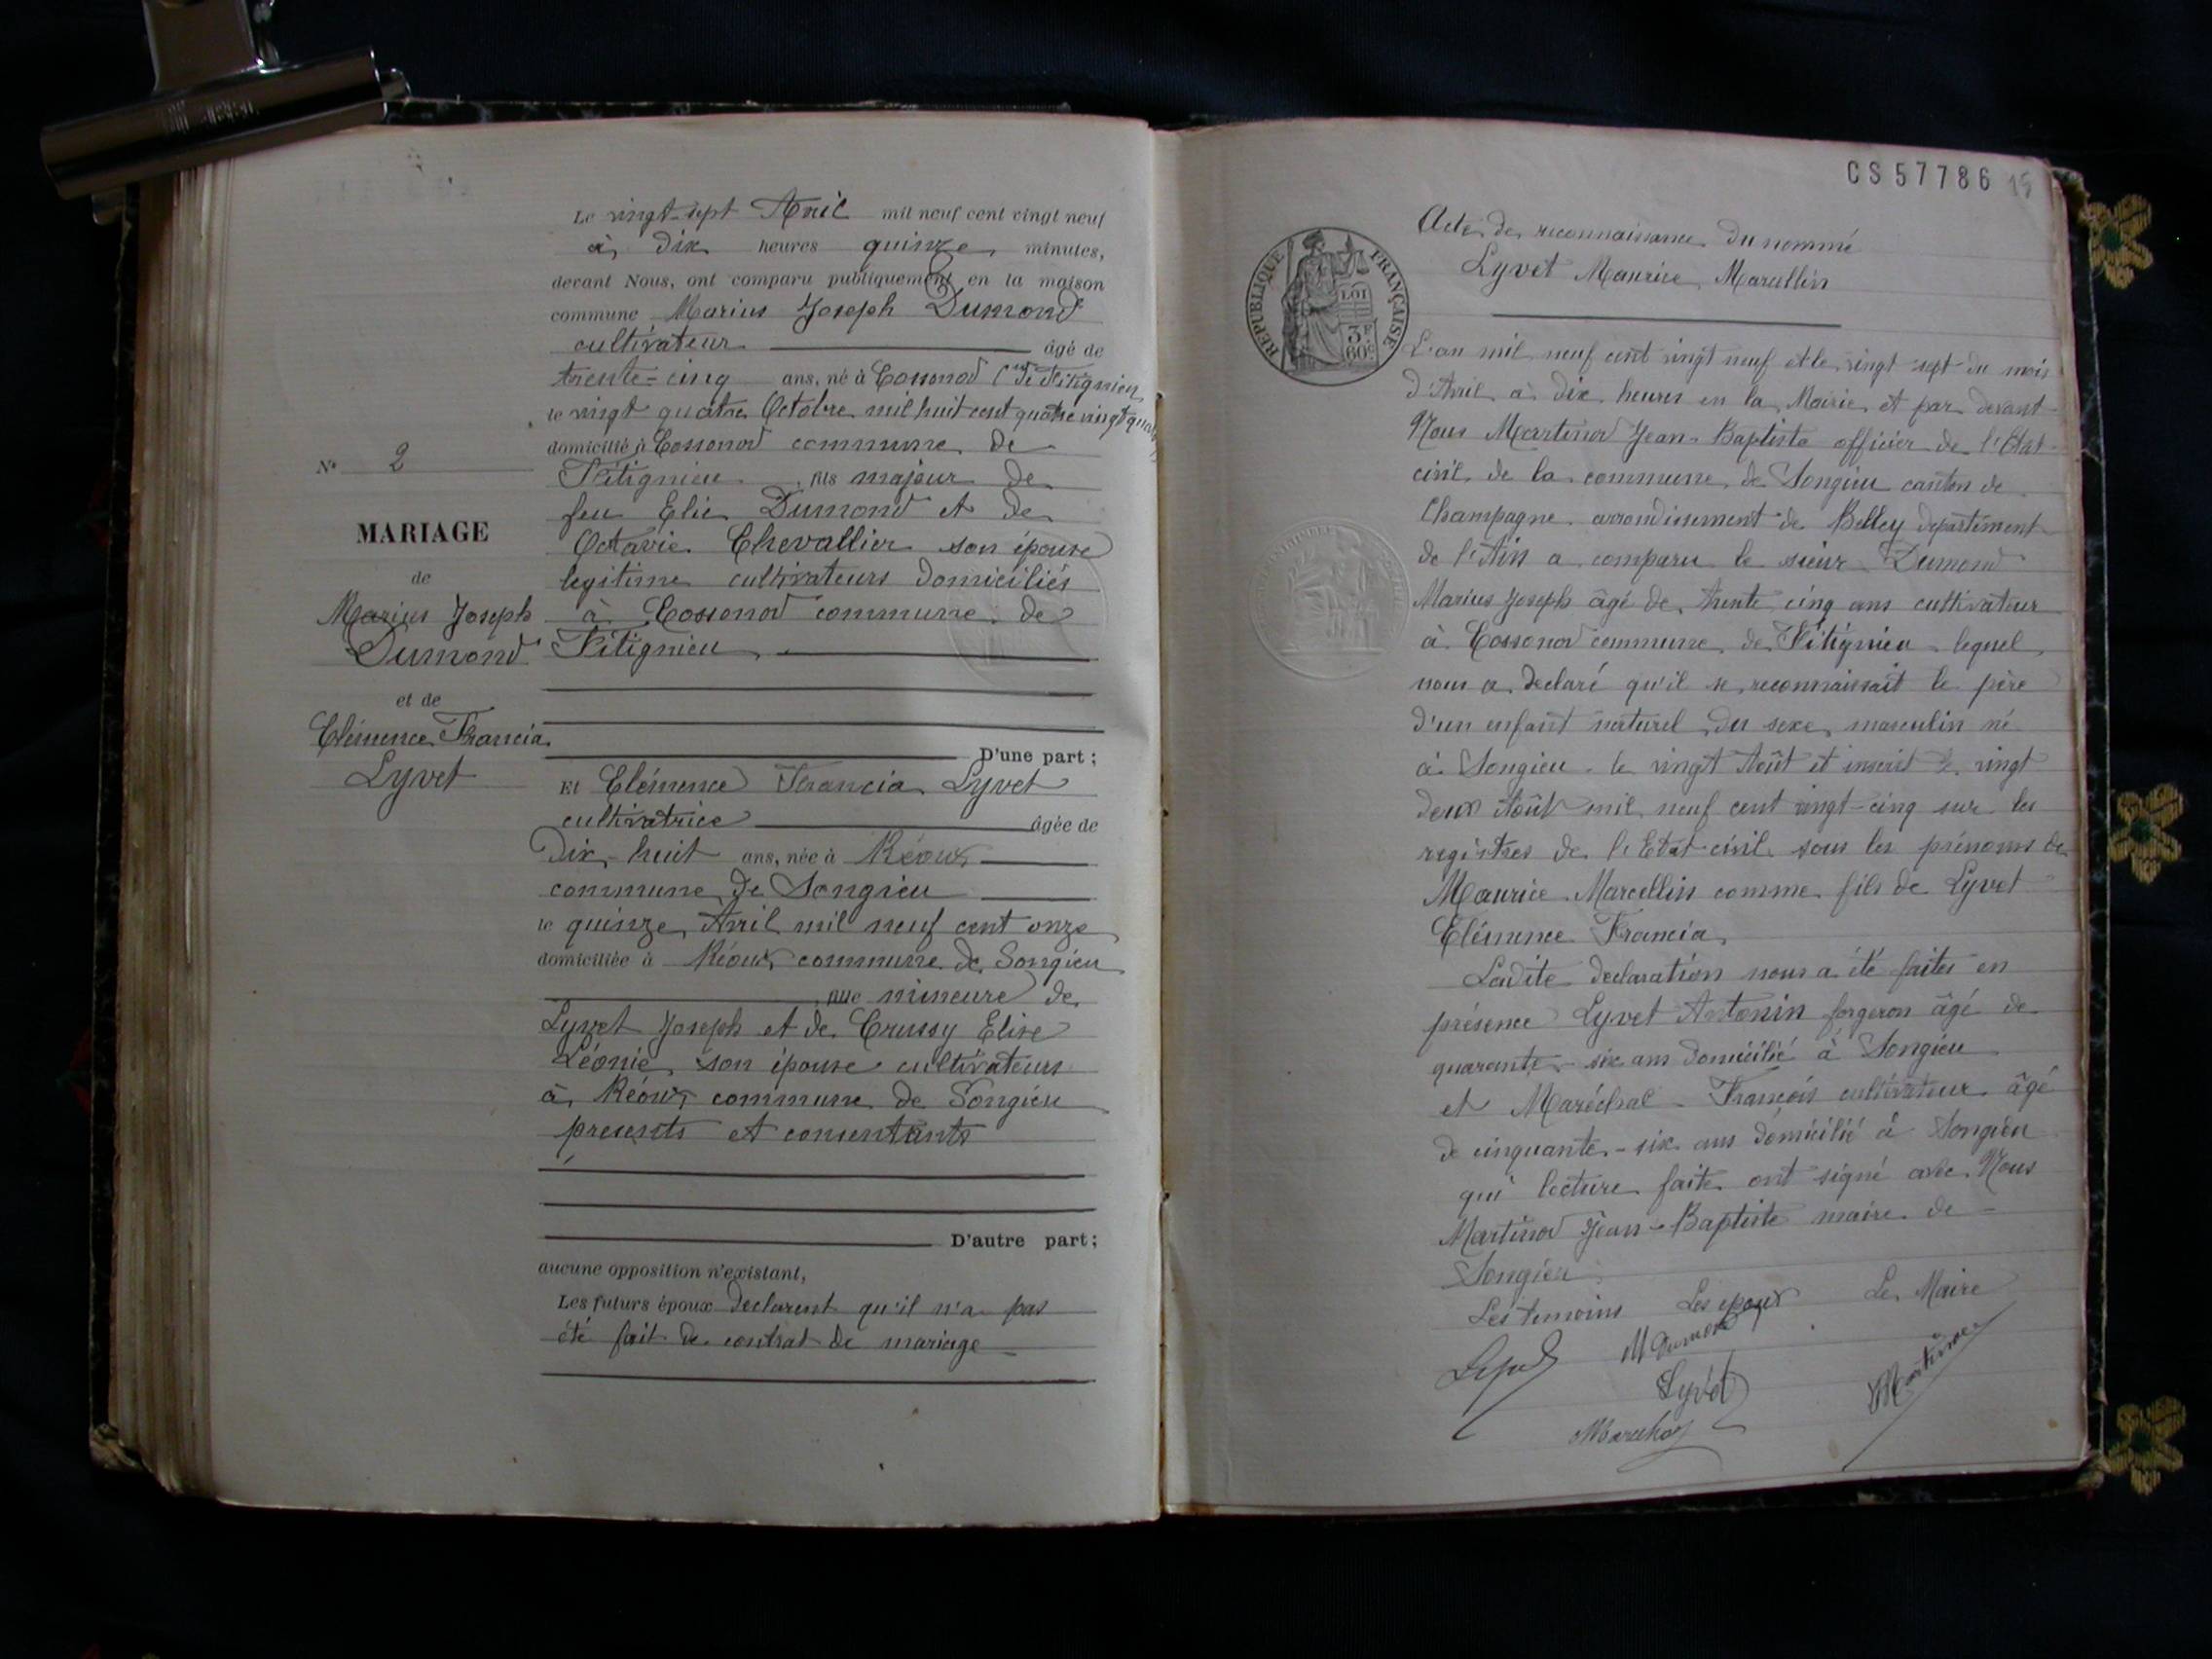 Le vingt-sept Avril mil neuf cent vingt neuf
à dix heures quinze minutes,
devant Nous, ont comparu publiquement en la maison
commune Marius Joseph Dumond
cultivateur âgé de
trente-cinq ans, né à Cossonod Cne de Fitignieu
le vingt quatre Octobre mil huit cent quatre vingt
domicilié à Cossonod commune de
Fitignieu fils majeur de
feu Elie Dumond et de
Octavie Chevallier son épouse
legitime cultivateurs domiciliés
à Cossonod commune de
Fitignieu
D'une part;
N° 2
MARIAGE
de
Marius Joseph
Dumond
et de
Clémence Francia
Lyvet
Et Clémence Francia Lyvet
cultivatrice âgée de
Dix-huit ans, née à Réoux
commune de Songieu
le quinze Avril mil neuf cent onze
domiciliée à Réoux commune de Songieu
fille mineure de
Lyvet Joseph et de Crussy Elise
Léonie son épouse cultivateurs
à Réoux commune de Songieu
presents et consentants
D'autre part;
aucune opposition n'existant,
Les futurs époux declarent qu'il n'a pas
été fait de contrat de mariage
CS57786 15
Acte de reconnaissance du nommé
Lyvet Maurice Marcellin
REPUBLIQUE FRANÇAISE
LOI
3F
60c
L'an mil neuf cent vingt neuf et le vingt sept du mois
d'Avril à dix heures en la Mairie et par devant
Nous Martinod Jean-Baptiste officier de l'Etat-
civil de la commune de Songieu canton de
Champagne arrondissement de Belley departement
de l'Ain a comparu le sieur Dumond
Marius Joseph âgé de trente cinq ans cultivateur
à Cossonod commune de Fitignieu lequel
nous a declaré qu'il se reconnaissait le père
d'un enfant naturel du sexe masculin né
à Songieu le vingt Août et inscrit le vingt
deux Août mil neuf cent vingt-cinq sur les
registres de l'Etat-civil sous les prénoms de
Maurice Marcellin comme fils de Lyvet
Clémence Francia
Ladite declaration nous a été faites en
présence Lyvet Antonin forgeron âgé de
quarante-six ans domicilié à Songieu
et Maréchal François cultivateur âgé
de cinquante-six ans domicilié à Songieu
qui lecture faite ont signé avec Nous
Martinod Jean-Baptiste maire de
Songieu
Les temoins Les epoux Le Maire
M Dumond
Lyvet
Martinod
Marechal